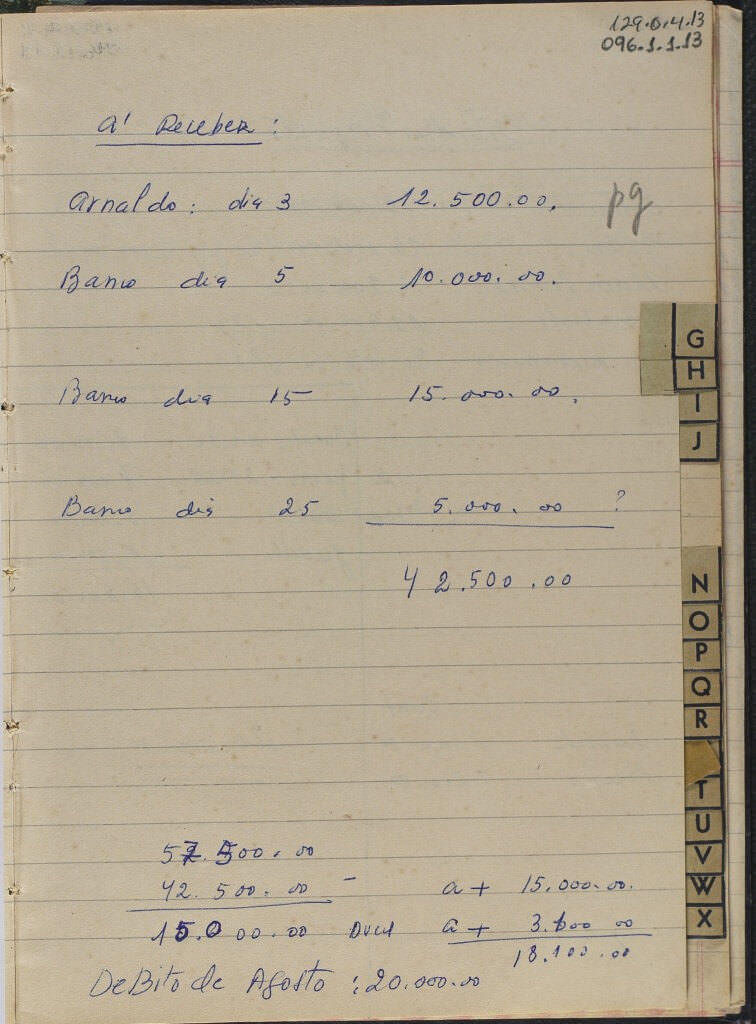 129.0.4.13
096.1.1.13
a' Receber :
Arnaldo : dia 3 12.500.00. pg
Banco dia 5 10.000.00.
Banco dia 15 15.000.00.
Banco dia 25 5.000.00 ?
42.500.00
57.500.00
42.500.00 -
15.000.00
a + 15.000.00.
a + 3.100 00
18.100.00
DeBito de Agosto : 20.000.00
G
H
I
J
N
O
P
Q
R
T
U
V
W
X